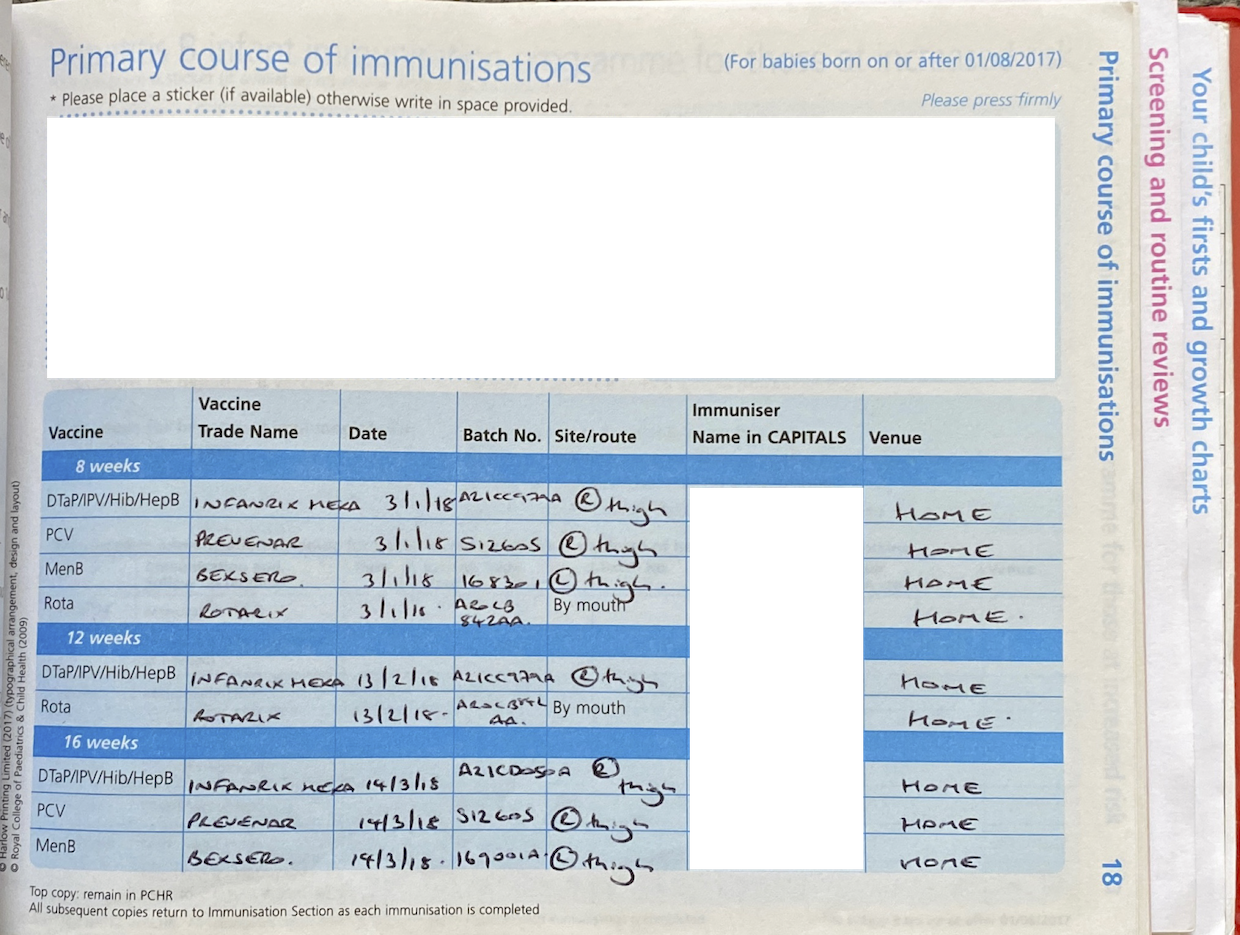 Primary course of immunisations (For babies born on or after 01/08/2017)
* Please place a sticker (if available) otherwise write in space provided. Please press firmly
Vaccine Vaccine Trade Name Date Batch No. Site/route Immuniser Name in CAPITALS Venue
8 weeks
DTaP/IPV/Hib/HepB INFANRIX HEXA 3/1/18 A21CC979A R thigh HOME
PCV PREVENAR 3/1/18 S12605 R thigh HOME
MenB BEXSERO. 3/1/18 168301 L thigh. HOME
Rota ROTARIX 3/1/18. AROLB 842AA. By mouth HOME.
12 weeks
DTaP/IPV/Hib/HepB INFANRIX HEXA 13/2/18 A21CC979A R thigh HOME
Rota ROTARIX 13/2/18. AA. By mouth HOME.
16 weeks
DTaP/IPV/Hib/HepB INFANRIX HEXA 14/3/18 A21CD050A R thigh HOME
PCV PREVENAR 14/3/18 S12605 R thigh HOME
MenB BEXSERO. 14/3/18. 169001A L thigh HOME
Top copy: remain in PCHR
All subsequent copies return to Immunisation Section as each immunisation is completed
© Harlow Printing Limited (2017) (typographical arrangement, design and layout)
© Royal College of Paediatrics & Child Health (2009)
Primary course of immunisations 18
Screening and routine reviews
Your child's firsts and growth charts